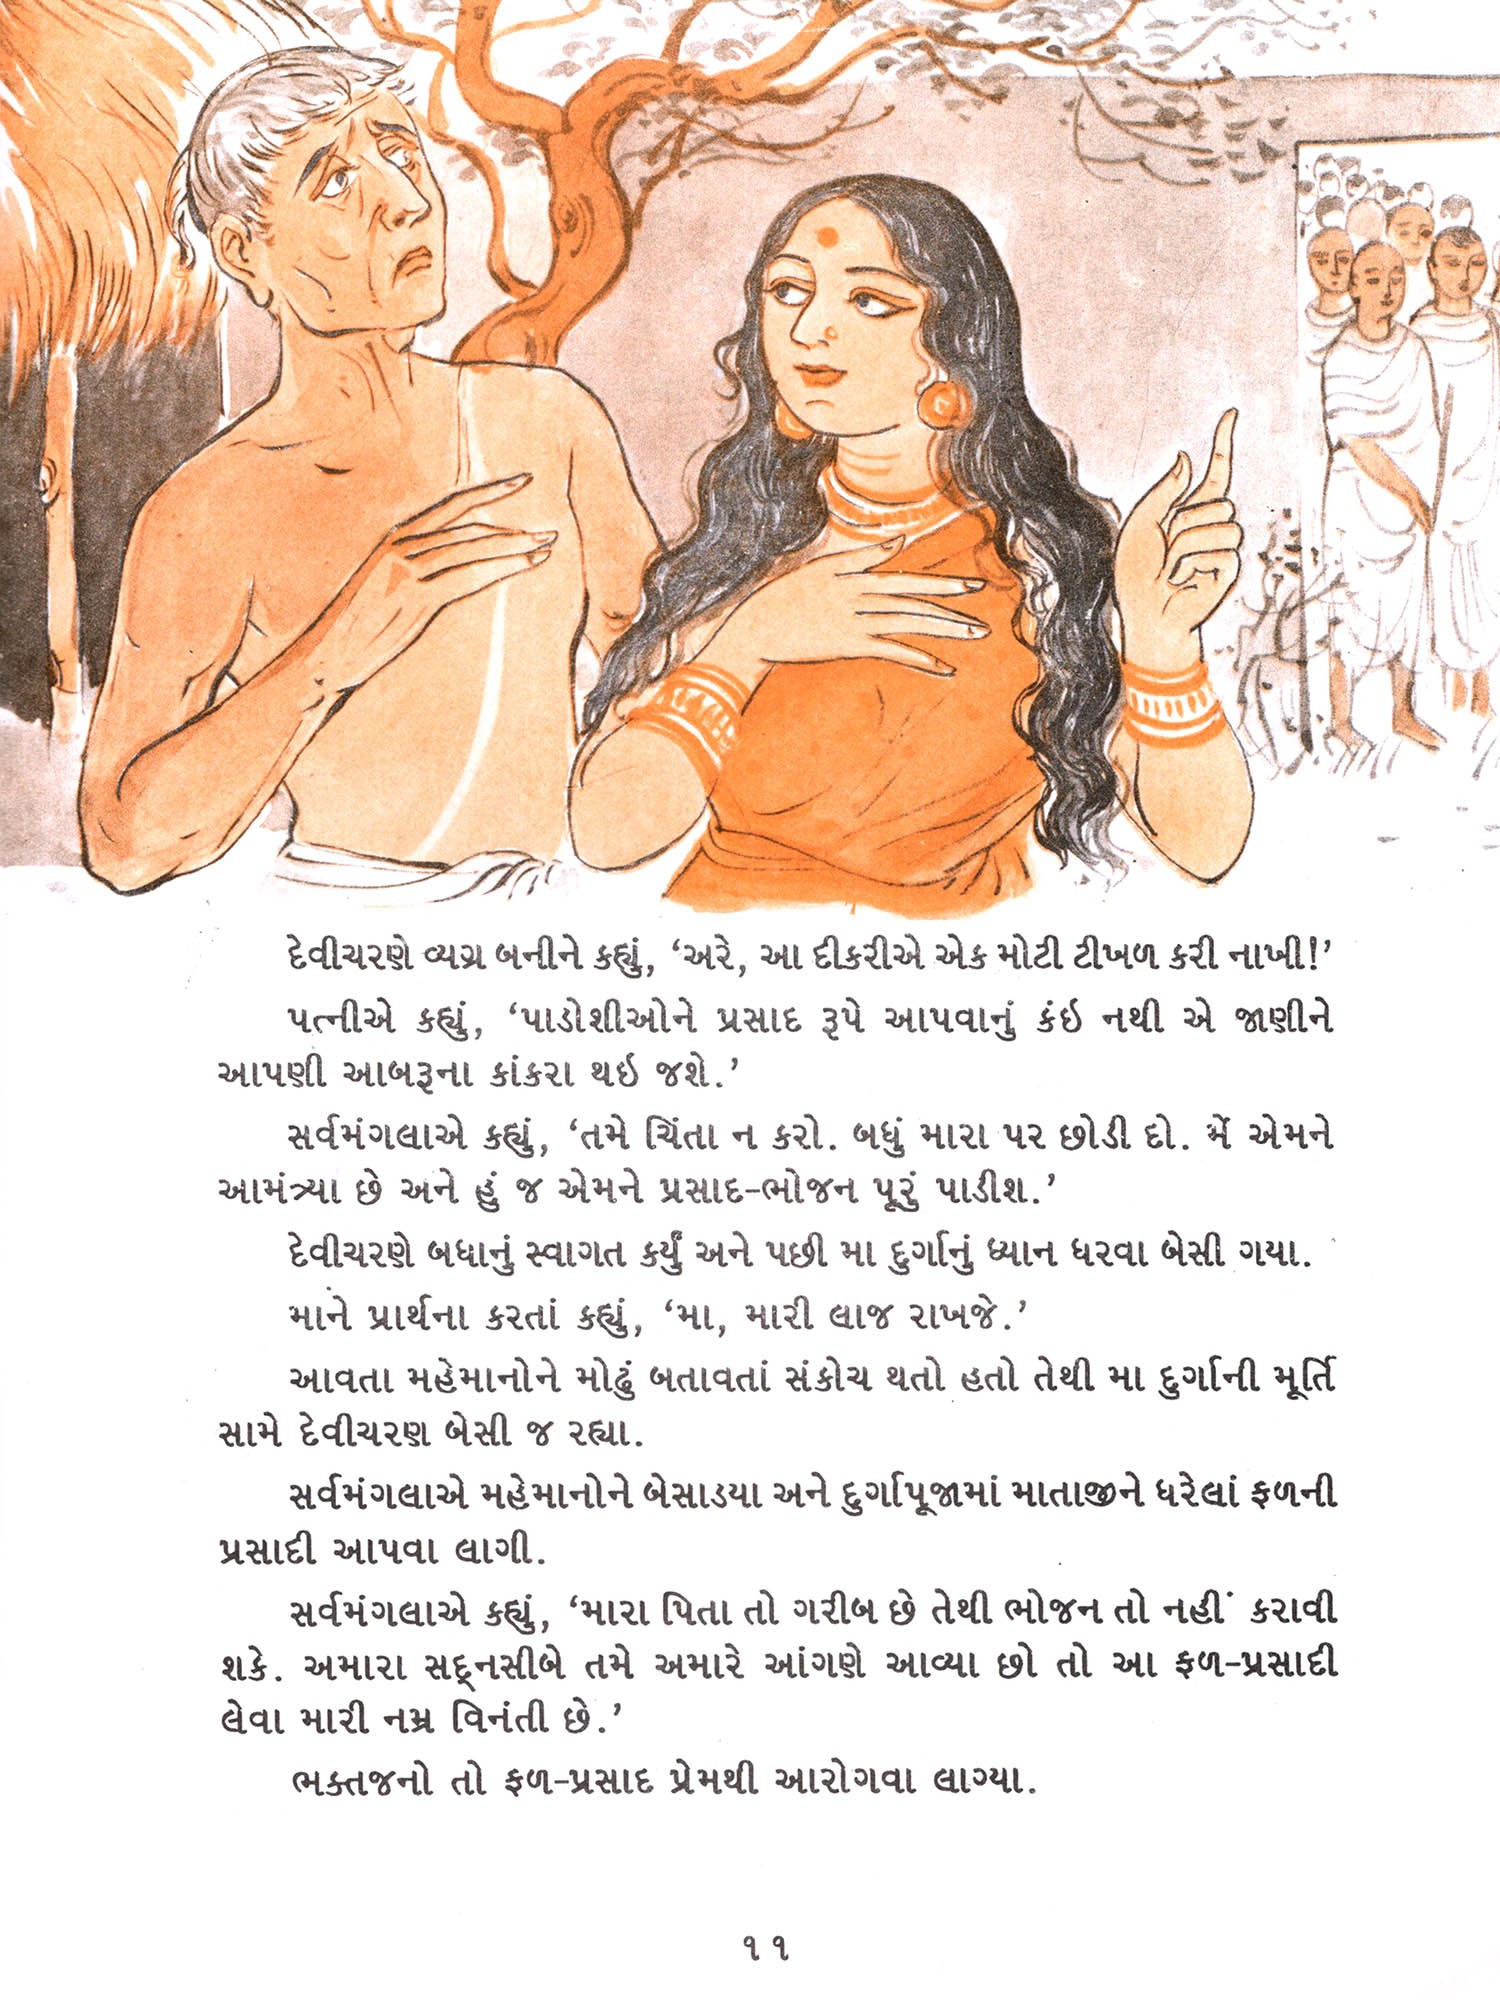 દેવીચરણે વ્યગ્ર બનીને કહ્યું, ‘અરે, આ દીકરીએ એક મોટી ટીખળ કરી નાખી!’
પત્નીએ કહ્યું, ‘પાડોશીઓને પ્રસાદ રૂપે આપવાનું કંઇ નથી એ જાણીને
આપણી આબરૂના કાંકરા થઇ જશે.’
સર્વમંગલાએ કહ્યું, ‘તમે ચિંતા ન કરો. બધું મારા પર છોડી દો. મેં એમને
આમંત્ર્યા છે અને હું જ એમને પ્રસાદ-ભોજન પૂરું પાડીશ.’
દેવીચરણે બધાનું સ્વાગત કર્યું અને પછી મા દુર્ગાનું ધ્યાન ધરવા બેસી ગયા.
માને પ્રાર્થના કરતાં કહ્યું, ‘મા, મારી લાજ રાખજે.’
આવતા મહેમાનોને મોઢું બતાવતાં સંકોચ થતો હતો તેથી મા દુર્ગાની મૂર્તિ
સામે દેવીચરણ બેસી જ રહ્યા.
સર્વમંગલાએ મહેમાનોને બેસાડયા અને દુર્ગાપૂજામાં માતાજીને ધરેલાં ફળની
પ્રસાદી આપવા લાગી.
સર્વમંગલાએ કહ્યું, ‘મારા પિતા તો ગરીબ છે તેથી ભોજન તો નહીં કરાવી
શકે. અમારા સદ્‌નસીબે તમે અમારે આંગણે આવ્યા છો તો આ ફળ-પ્રસાદી
લેવા મારી નમ્ર વિનંતી છે.’
ભક્તજનો તો ફળ-પ્રસાદ પ્રેમથી આરોગવા લાગ્યા.
૧૧